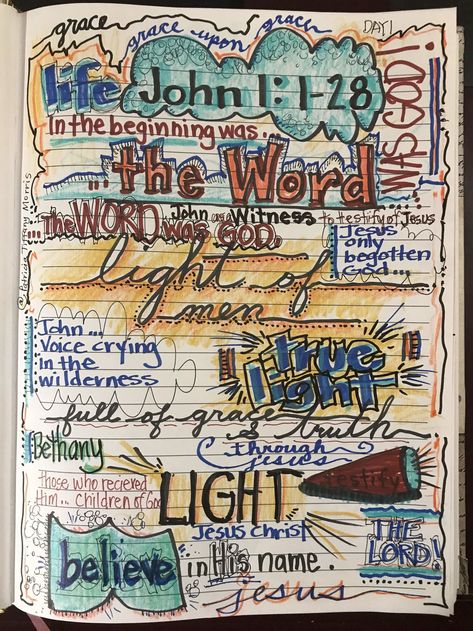 grace grace upon grace
DAY 1
life John 1:1-28
WAS GOD!
In the beginning was...
...the Word
@ Patricia Tiffany Morris
...The WORD was GOD.
John as a Witness to testify of Jesus
Jesus
only
begotten
God...
light of
men
John...
Voice crying
in the
wilderness
true
light
full of grace
& truth
Bethany
through
jesus
Those who recieved
Him... children of God
LIGHT
testify
Jesus Christ
THE
LORD!
believe in His name.
jesus